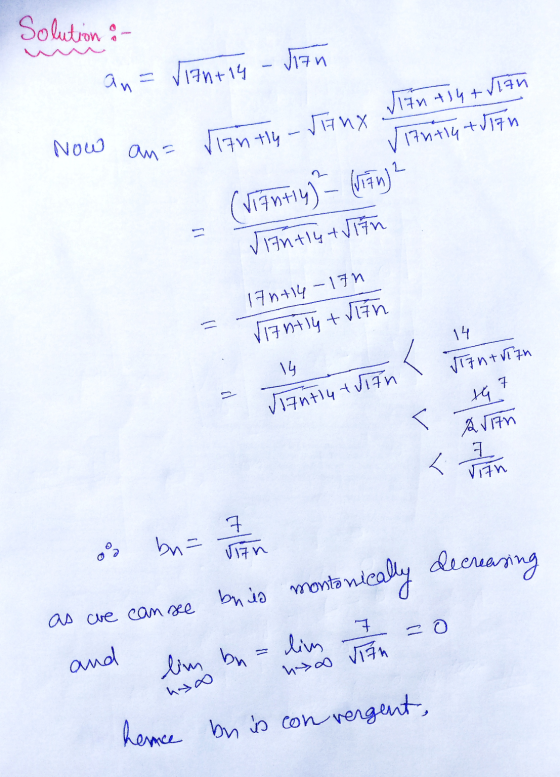 Solution :-
aₙ = √(17n+14) - √(17n)
Now aₙ = √(17n+14) - √(17n) × (√(17n+14) + √(17n))/(√(17n+14) + √(17n))
= ((√(17n+14))² - (√(17n))²)/(√(17n+14) + √(17n))
= (17n+14-17n)/(√(17n+14) + √(17n))
= 14/(√(17n+14) + √(17n)) < 14/(√(17n) + √(17n))
< 14 7/(2√(17n))
< 7/√(17n)
∴ bₙ = 7/√(17n)
as we can see bₙ is montonically decreasing
and lim n→∞ bₙ = lim n→∞ 7/√(17n) = 0
hence bₙ is convergent,